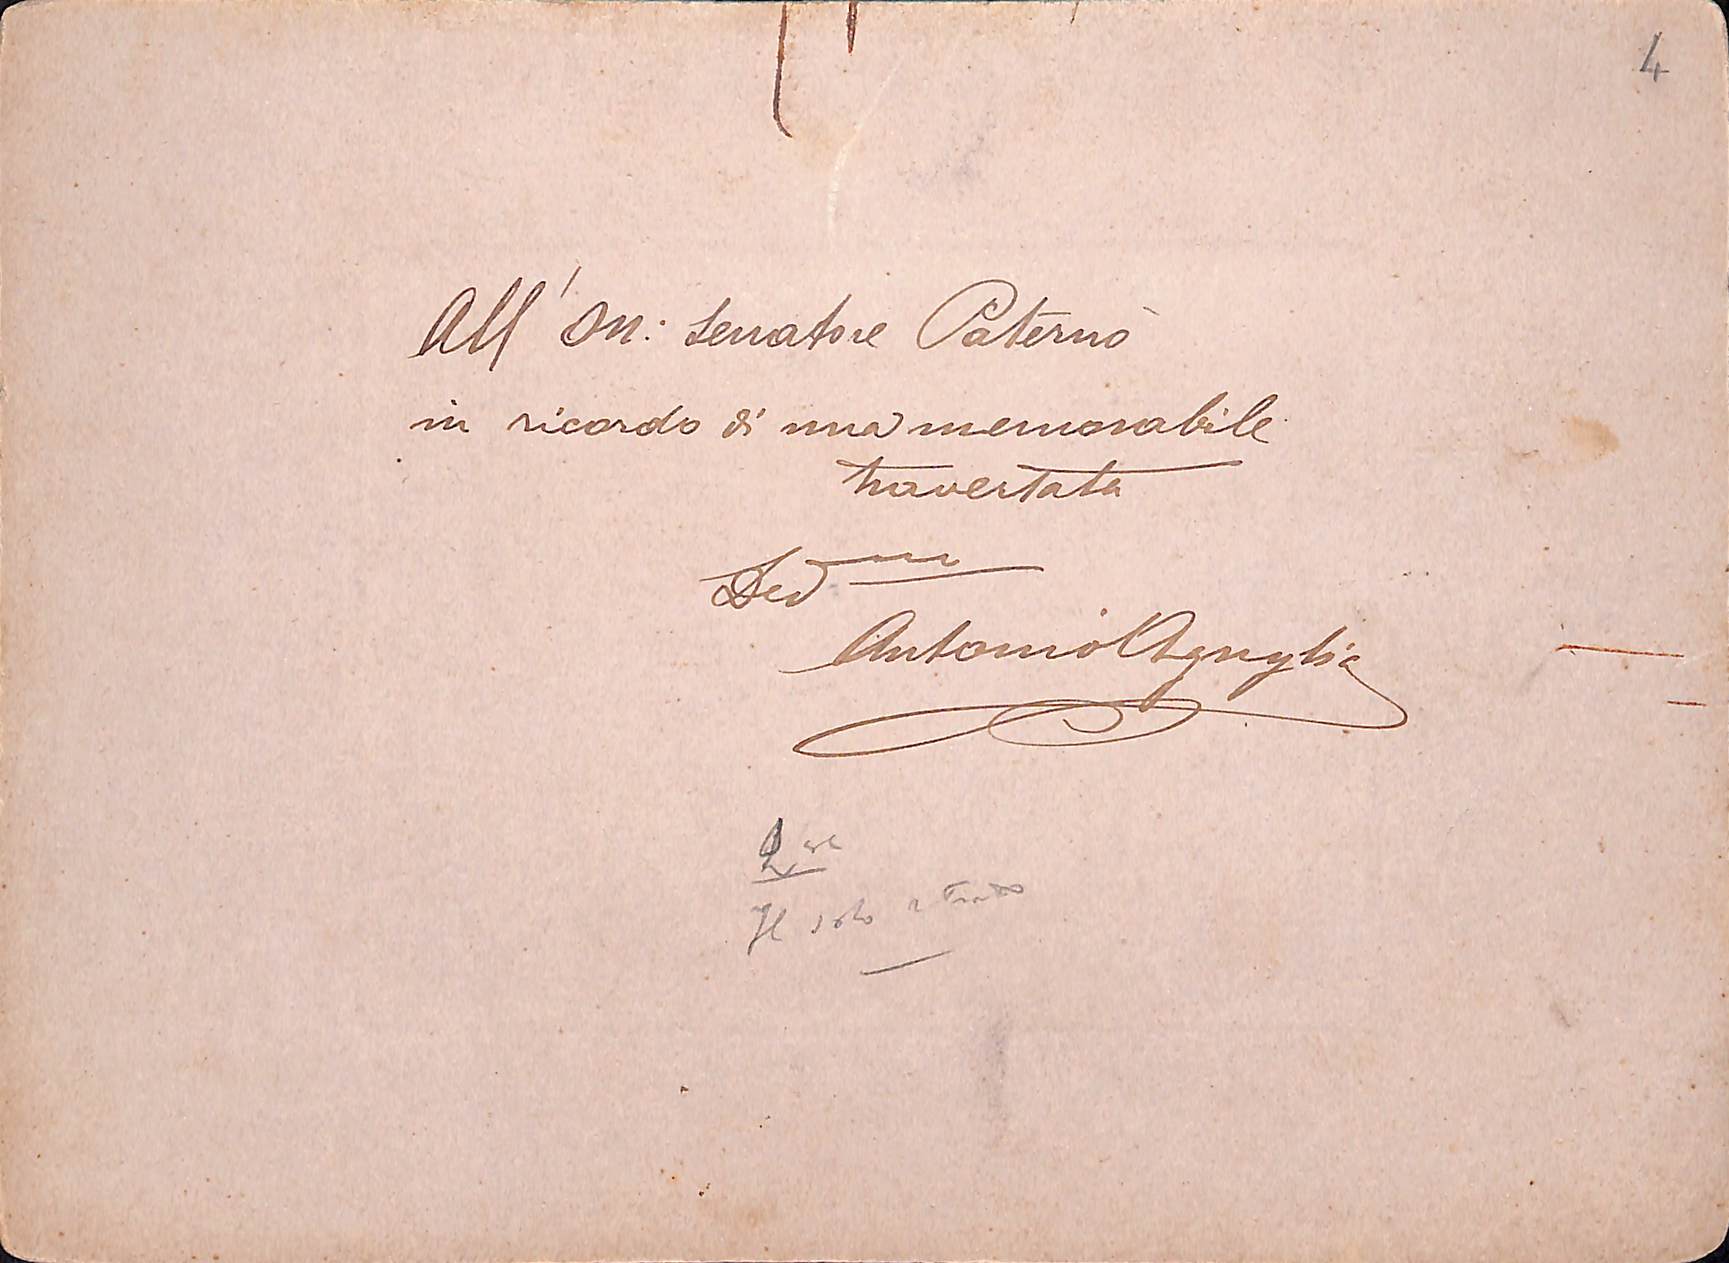 4
All' On: Senatore Paternò
in ricordo di una memorabile
traversata
Dev<sup>mo</sup>
Antonio Agnylia
Il solo ritratto